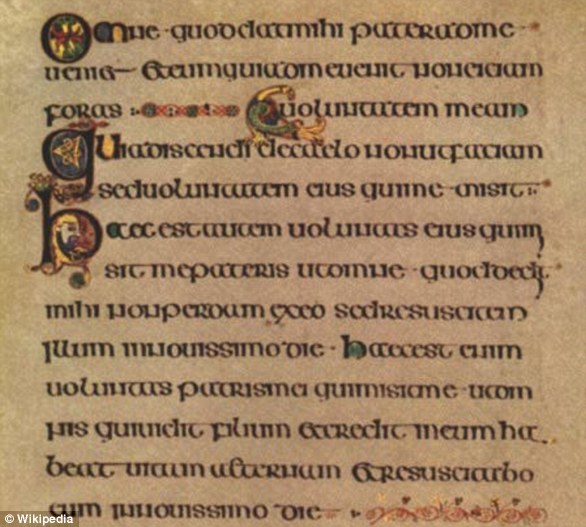 Omne · quod dat mihi pater ad me
ueniet & eum qui ad me uenit non eiciam
foras : uoluntatem meam
Quia discendi de caelo non ut faciam
sed uoluntatem eius qui me misit
haec est autem uoluntas eius qui m
sit me pateris ut omne · quod dedit
mihi non perdam ex eo sed resuscitem
illum in nouissimo die · haec est enim
uoluntas patris mei qui misit me ut om
nis qui uidit filium & credit in eum ha
beat uitam aeternam & resuscitabo
eum in nouissimo die
© Wikipedia